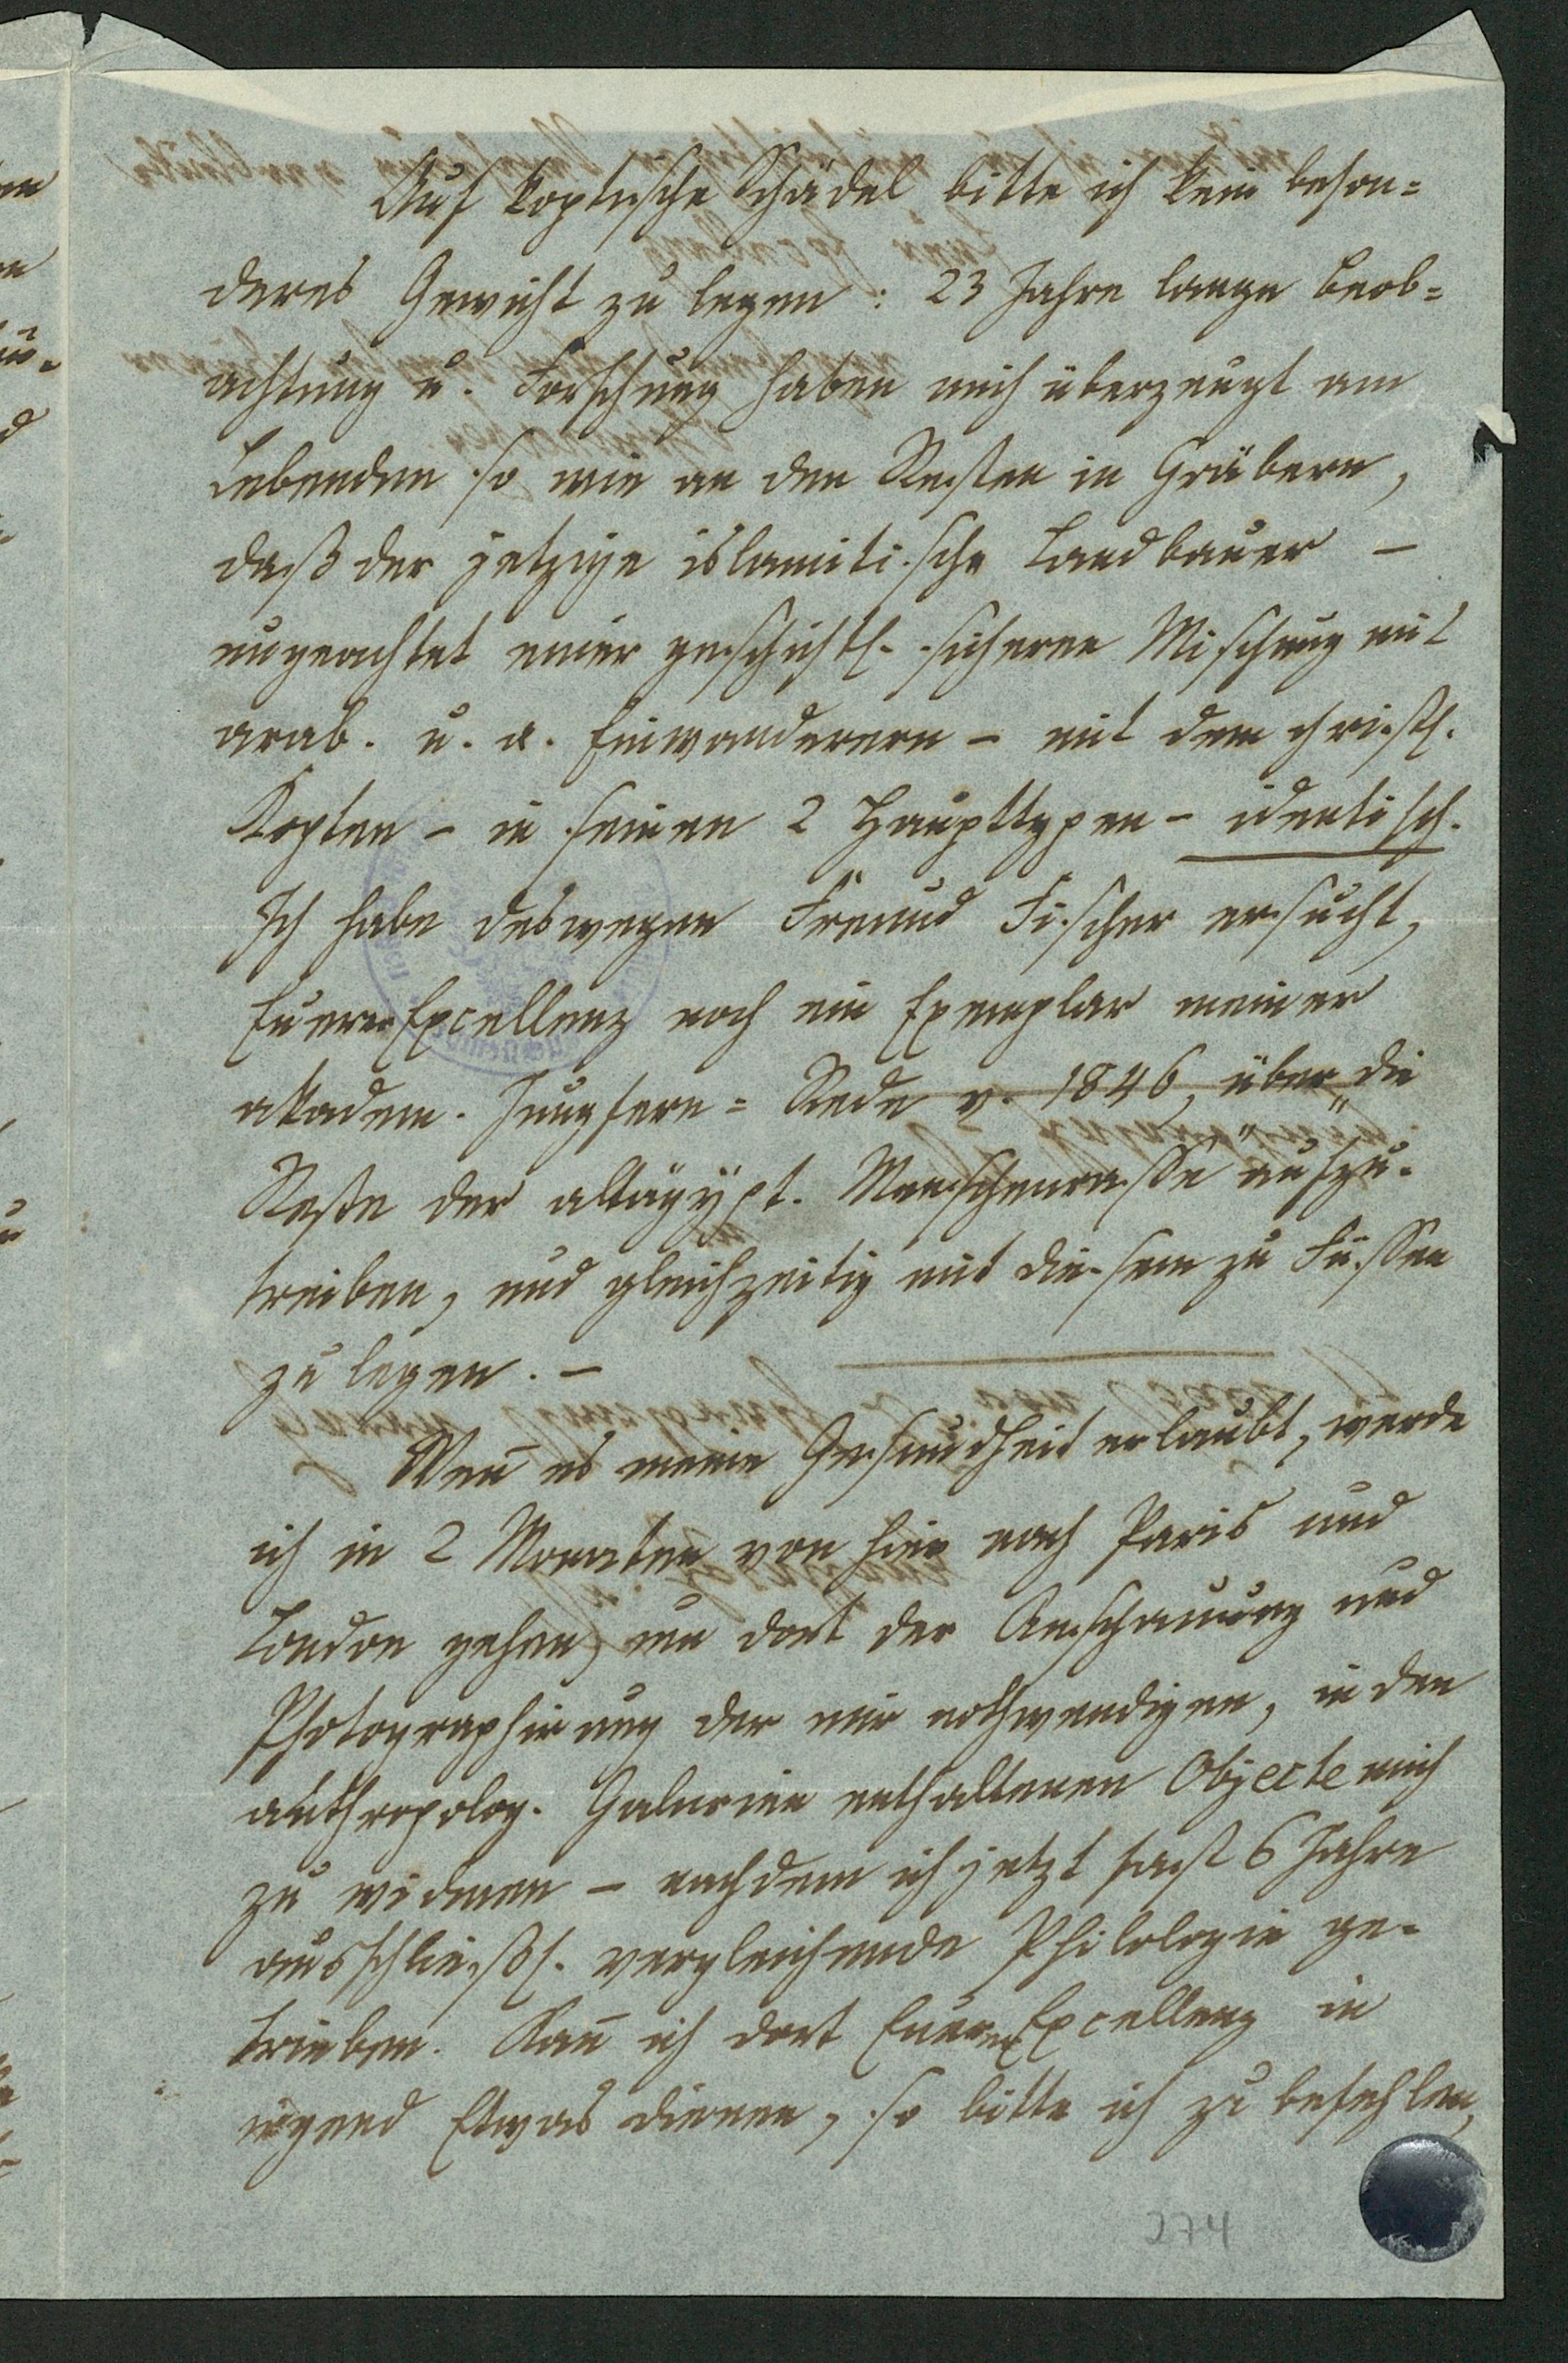 Auf koptische Schädel bitte ich kein beson=
deres Gewicht zu legen: 23 Jahre lange Beob=
achtung u. Forschung haben mich überzeugt am
Lebenden so wie an den Resten in Gräbern,
daß der jetzige islamitische Landbauer –
ungeachtet einer geschichtl. sicheren Mischung mit
arab. u. a. Einwanderern – mit dem christl.
Kopten – in seinen 2 Haupttypen – identisch.
Ich habe deswegen Freund Fischer ersucht,
Euerer Excellenz noch ein Exemplar meiner
akadem. Jungfern=Rede v. 1846, über „die
Reste der altägypt. Menschenrasse" aufzu-
treiben, und gleichzeitig mit diesem zu Füssen
zu legen. –
Wen̄ es meine Gesundheit erlaubt, werde
ich in 2 Monaten von hier nach Paris und
London gehen, um dort der Anschauung und
Photographirung der mir nothwendigen, in den
anthropolog. Galerien enthaltenen Objecte mich
zu widmen – nachdem ich jetzt fast 6 Jahre
ausschließl. vergleichende Philologie ge-
trieben. Kan̄ ich dort Euerer Excellenz in
irgend Etwas dienen, so bitte ich zu befehlen,
274